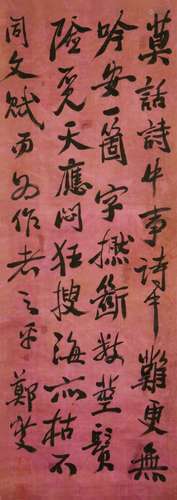 莫話詩中事詩中難更無
吟安一箇字撚斷數莖鬚
險覓天應悶狂搜海亦枯不
同文賦而為作者之乎 鄭燮